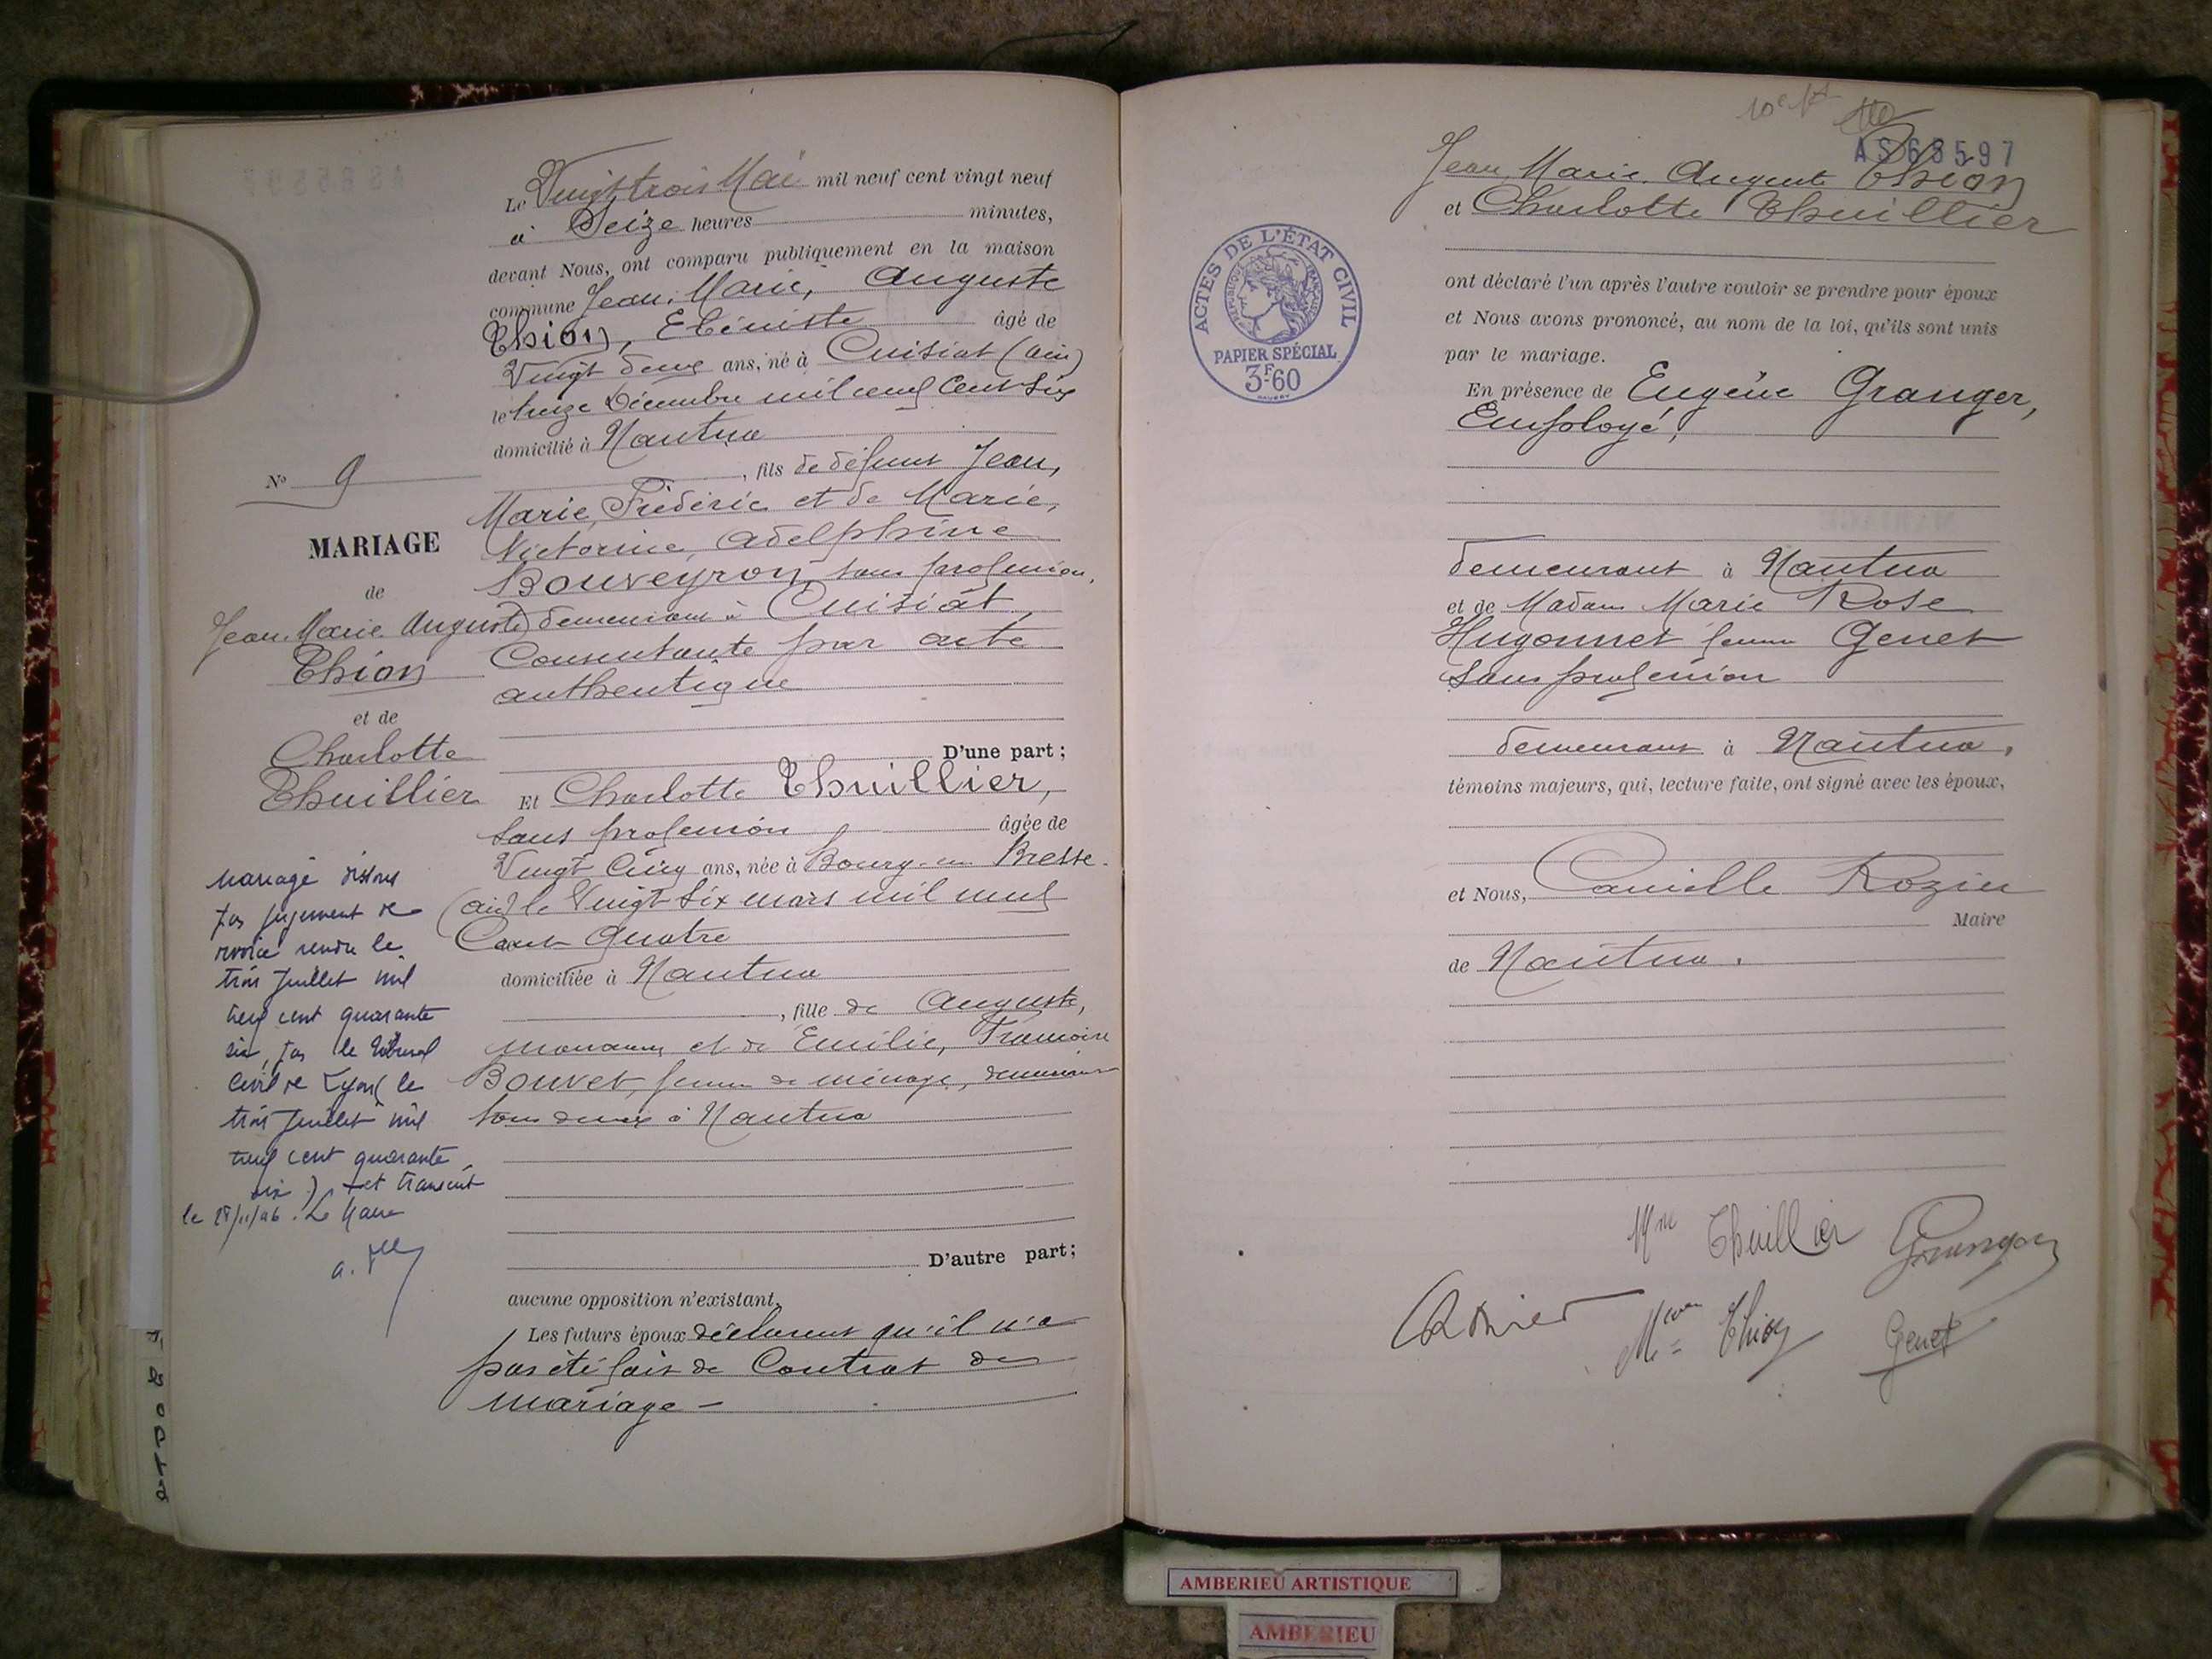 Le Vingt trois Mai mil neuf cent vingt neuf
à Seize heures minutes,
devant Nous, ont comparu publiquement en la maison
commune Jean, Marie, Auguste
Thion, Ebéniste âgé de
Vingt deux ans, né à Cuisiat (ain)
le treize Décembre mil neuf Cent Six
domicilié à Nantua
, fils de défunt Jean,
Marie, Frédéric et de Marie,
Victorine, Adelphine
Bouveyron, sans profession,
demeurant à Cuisiat,
Consentante par acte
authentique
D'une part ;
Et Charlotte Thuillier,
Sans profession âgée de
Vingt Cinq ans, née à Bourg-en Bresse
(ain) le Vingt Six mars mil neuf
Cent Quatre
domiciliée à Nantua
, fille de Auguste,
et de Emilie, Françoise
Bouvet, femme de ménage, demeurant
tous deux à Nantua
D'autre part ;
aucune opposition n'existant,
Les futurs époux déclarent qu'il n'a
pas été fait de Contrat de
mariage -
N° 9
MARIAGE
de
Jean. Marie Auguste
Thion
et de
Charlotte
Thuillier
Mariage dissous
par jugement de
divorce rendu le
trois Juillet mil
neuf cent quarante
six, par le tribunal
Civil de Lyon (le
trois Juillet mil
neuf cent quarante
six) et transcrit
le 28/11/46. Le Maire
AS 68597
Jean, Marie, Auguste Thion
et Charlotte Thuillier
ont déclaré l'un après l'autre vouloir se prendre pour époux
et Nous avons prononcé, au nom de la loi, qu'ils sont unis
par le mariage.
En présence de Eugène Granger,
Employé,
demeurant à Nantua
et de Madame Marie Rose
Hugonnet femme Genet
Sans profession
demeurant à Nantua,
témoins majeurs, qui, lecture faite, ont signé avec les époux,
et Nous, Camille Rozier
Maire
de Nantua.
ACTES DE L'ÉTAT CIVIL
RÉPUBLIQUE FRANÇAISE
PAPIER SPÉCIAL
3F60
Thuillier Granger
Thion Genet
AMBERIEU ARTISTIQUE
AMBERIEU